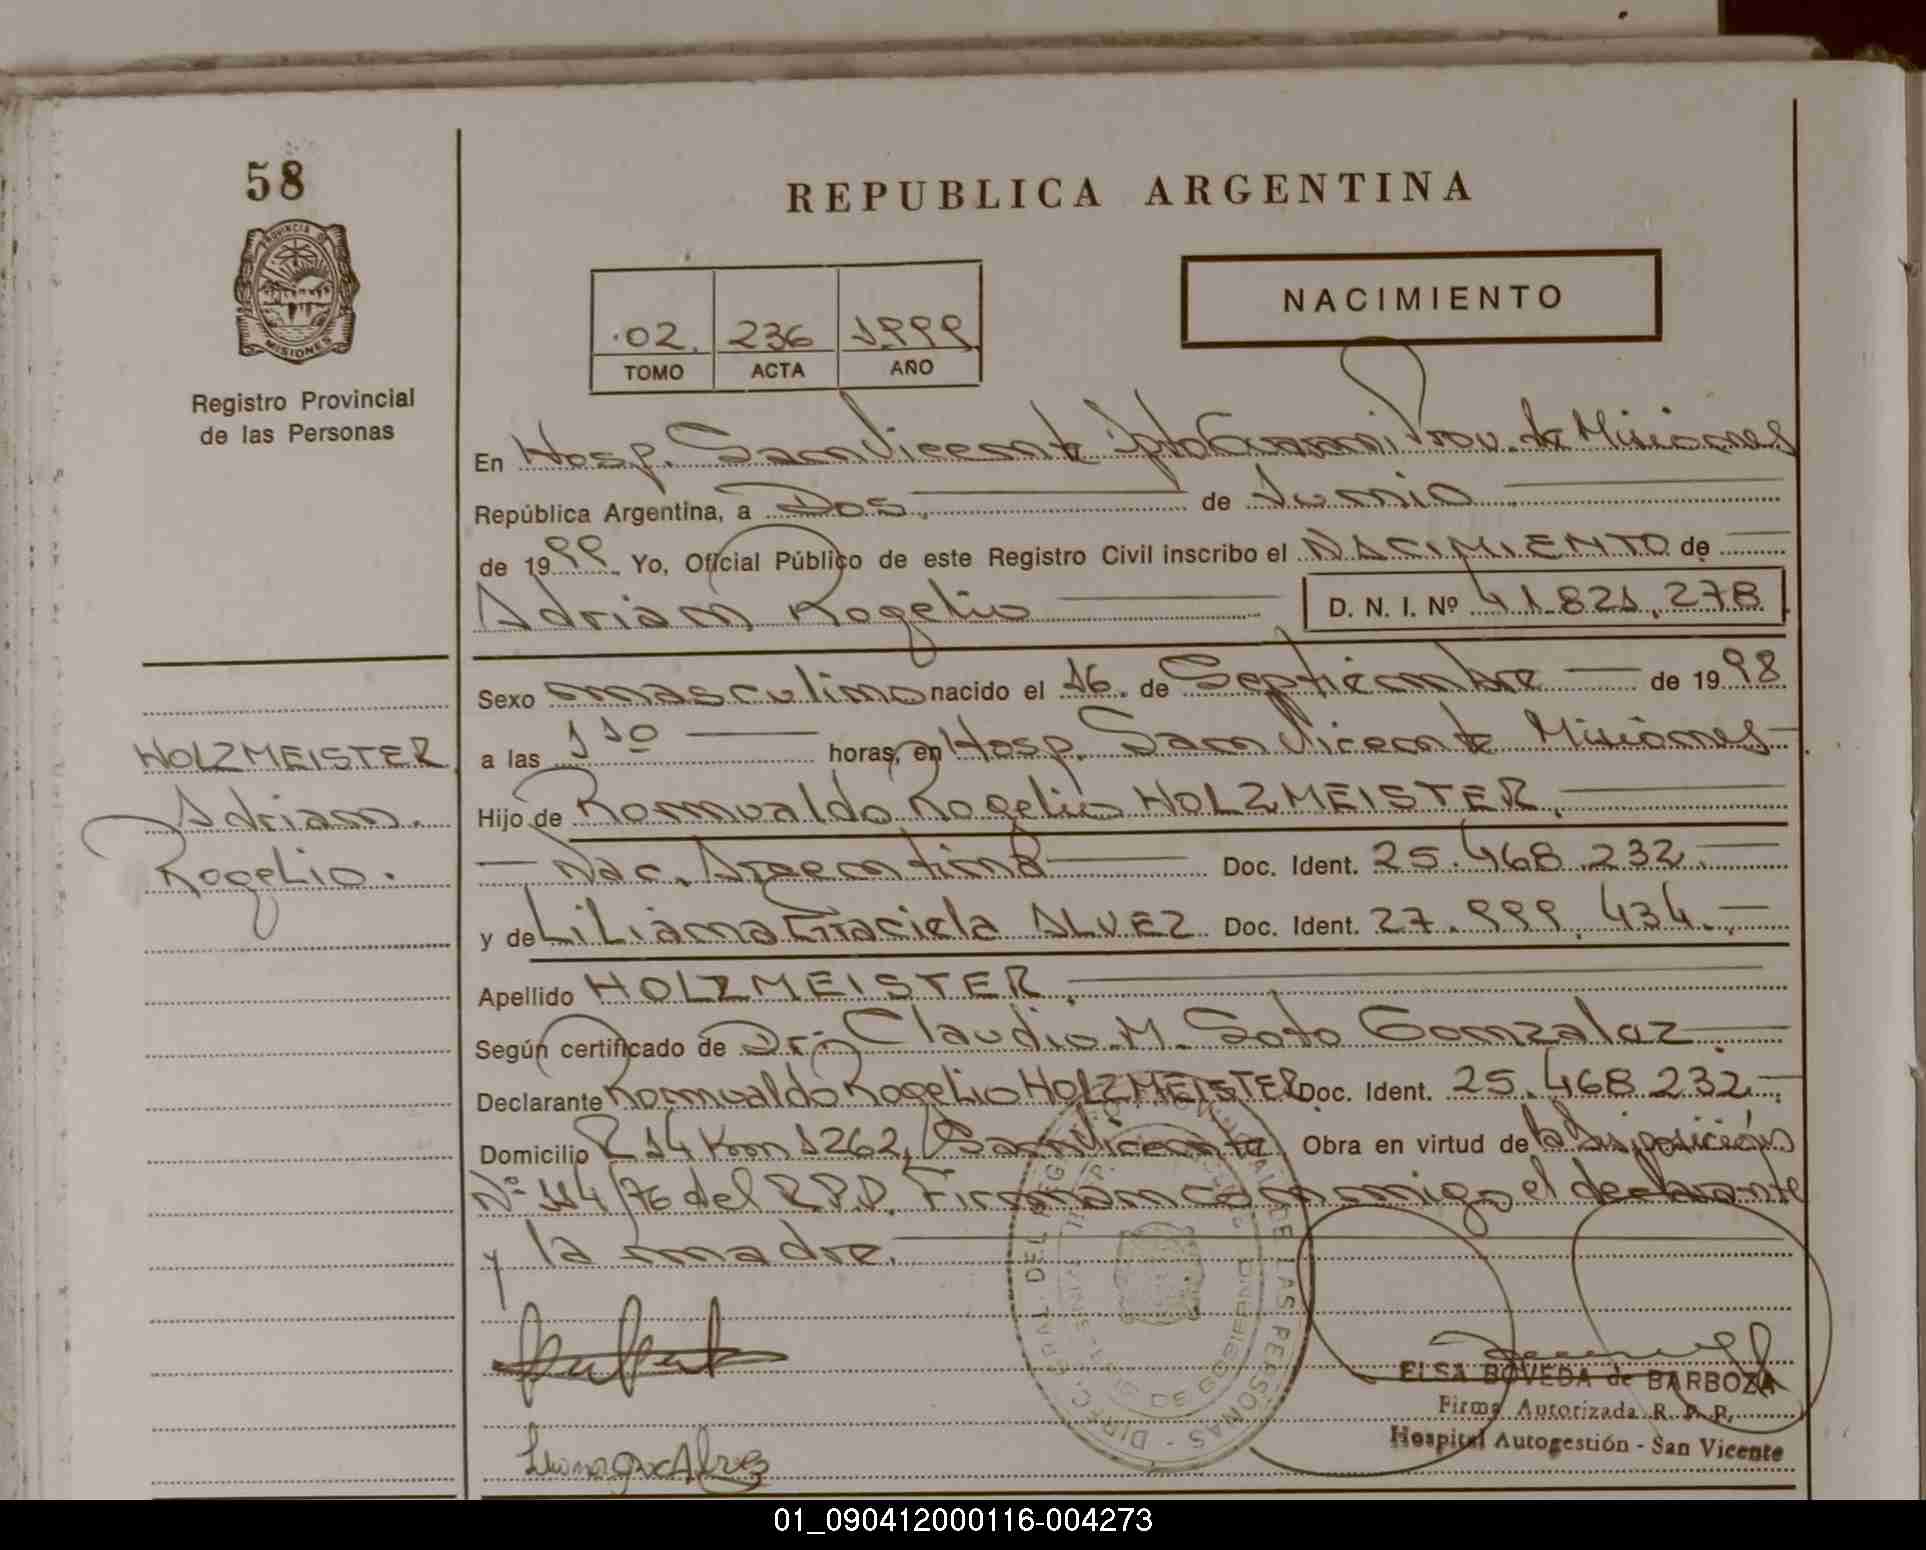 58
REPUBLICA ARGENTINA
PROVINCIA DE
MISIONES
Registro Provincial
de las Personas
NACIMIENTO
02. 236 1999
TOMO ACTA AÑO
En Hosp. San Vicente Dpto Guarani Prov. de Misiones
República Argentina, a Dos. de Junio
de 1999 Yo, Oficial Público de este Registro Civil inscribo el NACIMIENTO de
Adrian Rogelio D. N. I. Nº 41.821.278
Sexo masculino nacido el 16. de Septiembre de 1998
a las 1 10 horas, en Hosp. San Vicente Misiones
HOLZMEISTER
Adrian.
Rogelio.
Hijo de Romualdo Rogelio HOLZMEISTER.
Nac. Argentina Doc. Ident. 25.468.232
y de Liliana Graciela ALVEZ Doc. Ident. 27.999.434.
Apellido HOLZMEISTER.
Según certificado de Dr: Claudio M. Soto Gonzalaz.
Declarante Romualdo Rogelio HOLZMEISTER Doc. Ident. 25.468.232
Domicilio R 14 Km 1262, San Vicente Obra en virtud de la Disposición
Nº 114/76 del R.P.P. Firman conmigo el declarante
y la madre.
ELSA BOVEDA de BARBOZA
Firma Autorizada R. P. P.
Hospital Autogestión - San Vicente
01_090412000116-004273